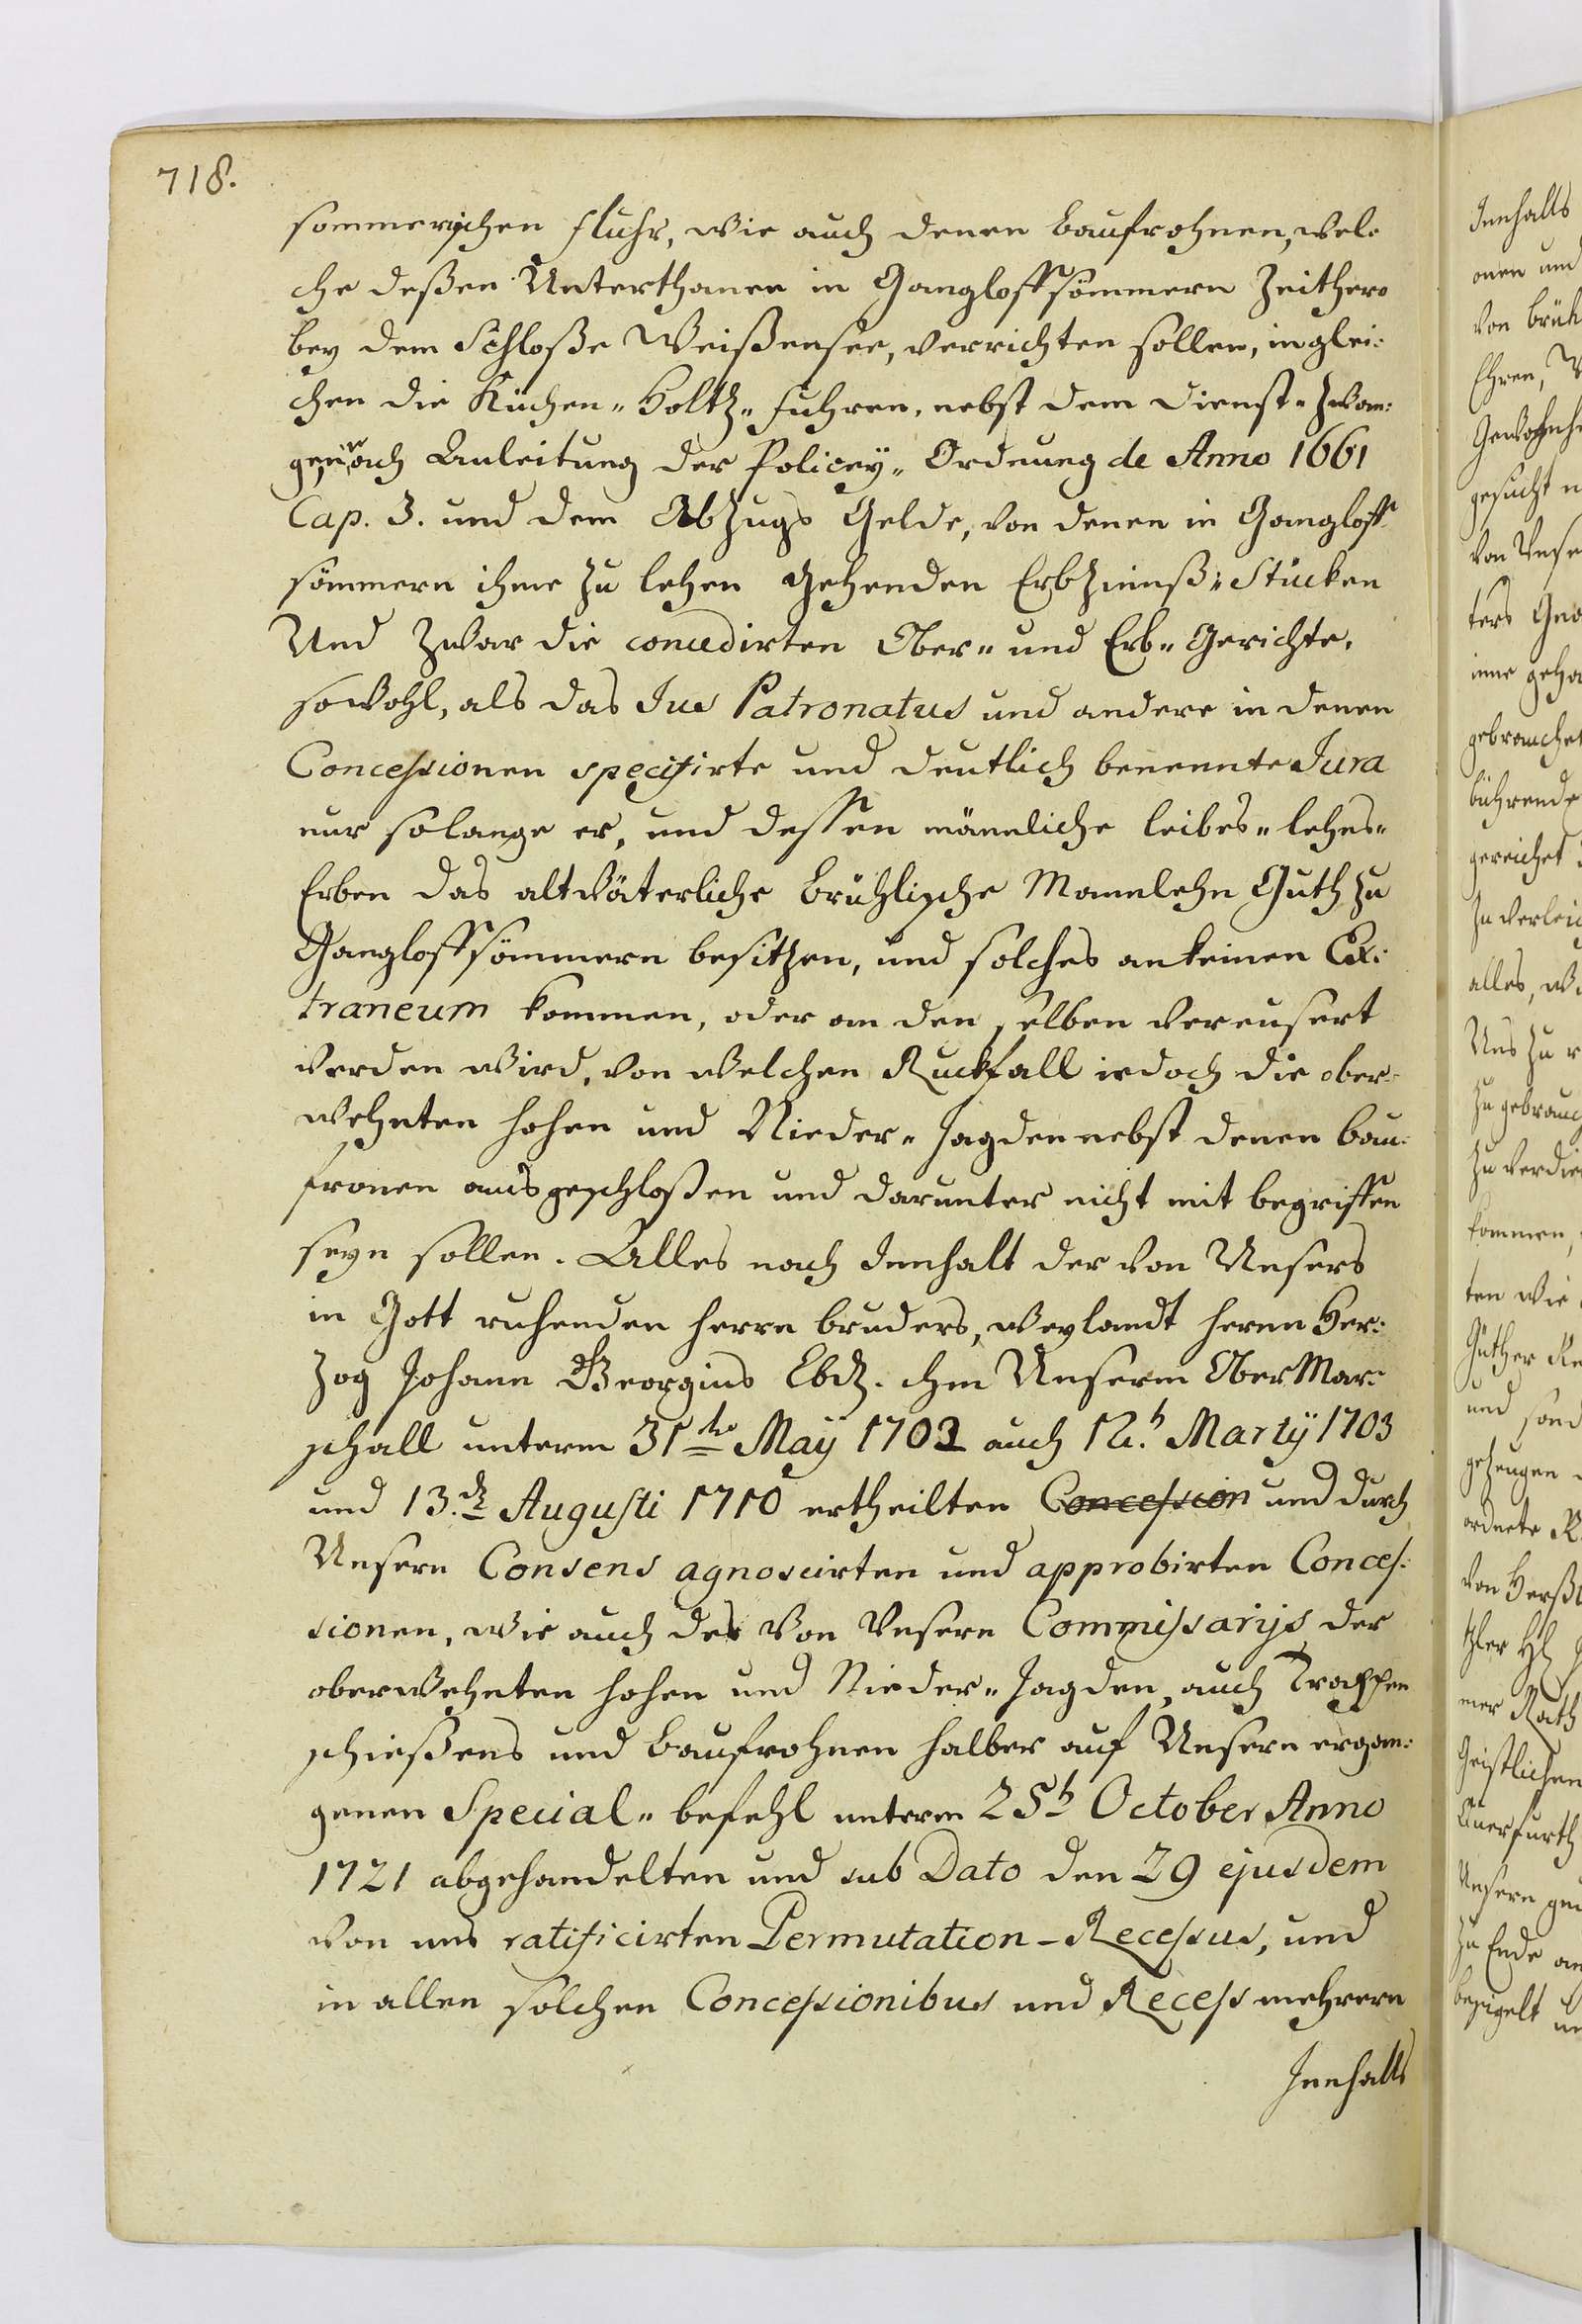 718.
sommerischen Fluhr, wie auch denen Baufrohnen, wel:
che deßen Unterthanen in Gangloffsömmern Zeithero
bey dem Schloße Weißensee, verrichten sollen, inglei:
chen die Küchen-Holtz-Fuhren, nebst dem Dienst-Zwan:
ge, nach Anleitung der Policey-Ordnung de Anno 1661
Cap. 3. und dem Abzugs Gelde, von denen in Gangloff
sömmern ihme zu Lehen gehenden Erbzinnß-Stücken
Und zwar die concedirten Ober- und Erb-Gerichte,
sowohl, als das Jus Patronatus und andere in denen
Concessionen specifirte und deutlich benennte Jura
nur solange er, und dessen männliche Leibes-Lehns-
Erben das altväterliche Brühlische Mannlehn Guth zu
Gangloffsömmern besitzen, und solches an keinen Ex:
traneum kommen, oder an denselben vereusert
werden wird, von welchen Ruckfall iedoch die ober-
wehnten hohen und Nieder-Jagden nebst denen Bau:
fronen ausgeschloßen und darunter nicht mit begriffen
seyn sollen. Alles nach Innhalt der von Unsers
in Gott ruhenden Herrn Bruders, Weylandt Herrn Her:
zog Johann Georgius Lbd. ihm Unserm Ober Mar:
schall unterm 31 May 1702 auch 12. Marty 1703
und 13. Augusti 1710 ertheilten Concession und durch
Unsern Consens agnoscirten und approbirten Conces:
sionen, wie auch des von Unsern Commissarijs der
oberwehnten hohen und Nieder-Jagden, auch Trappen
schießens und Baufrohnen halber auf Unsern ergan:
genen Special-Befehl unterm 25 October Anno
1721 abgehandelten und sub Dato den 29 ejusdem
von uns ratificirten Permutation-Recessus, und
in allen solchen Concessionibus und Recess mehrern
Innhalts
Innhalts
onen und
von Brüh
Ehren, W
Gewohnh
gesucht
von Unse
ters Gna
inne geha
gebrauchet
bührende
gereichet
zu verleic
alles, w
Uns zu
zu gebrauc
zu verdie
kommen,
ten wie
Güther
und sond
gezeugen
ordnete R
von Herß
tzler
mer Rath
Geistlichen
Querfurth
Unsern
zu Ende an
besigelt